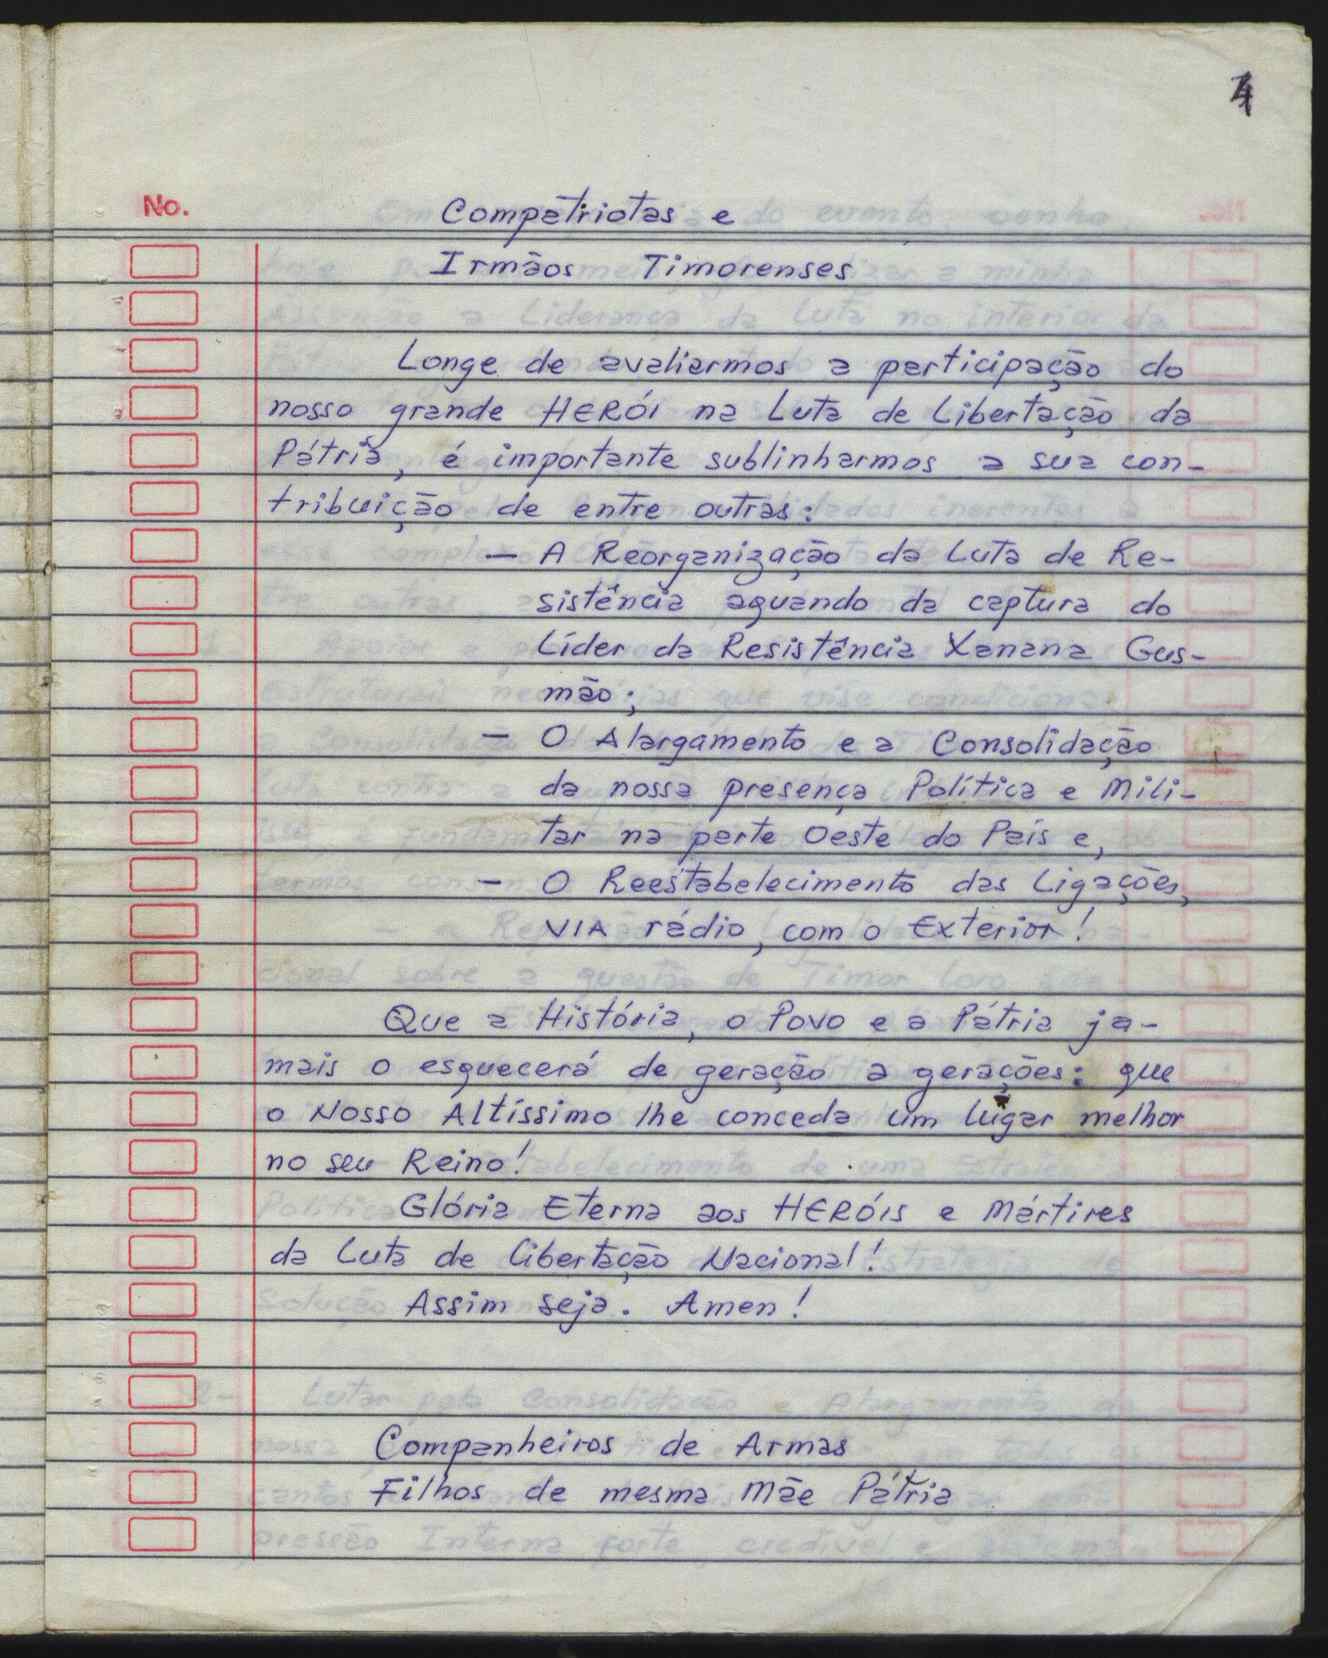 4
No.
Compatriotas e
Irmãos Timorenses
Longe de avaliarmos a participação do
nosso grande HERÓI na Luta de Libertação da
Pátria, é importante sublinharmos a sua con-
tribuição de entre outras:
- A Reorganização da Luta de Re-
sistência aquando da captura do
Líder da Resistência Xanana Gus-
mão;
- O Alargamento e a Consolidação
da nossa presença Política e Mili-
tar na parte Oeste do País e,
- O Reestabelecimento das Ligações,
VIA rádio, com o Exterior!
Que a História, o Povo e a Pátria ja-
mais o esquecerá de geração a gerações: que
o Nosso Altíssimo lhe conceda um lugar melhor
no seu Reino!
Glória Eterna aos HERÓIS e Mártires
da Luta de Libertação Nacional!
Assim seja. Amen!
Companheiros de Armas
Filhos de mesma Mãe Pátria